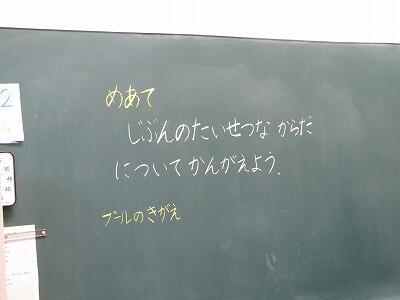 めあて
じぶんのたいせつな からだ
についてかんがえよう.
プールのきがえ
2
50
45
40